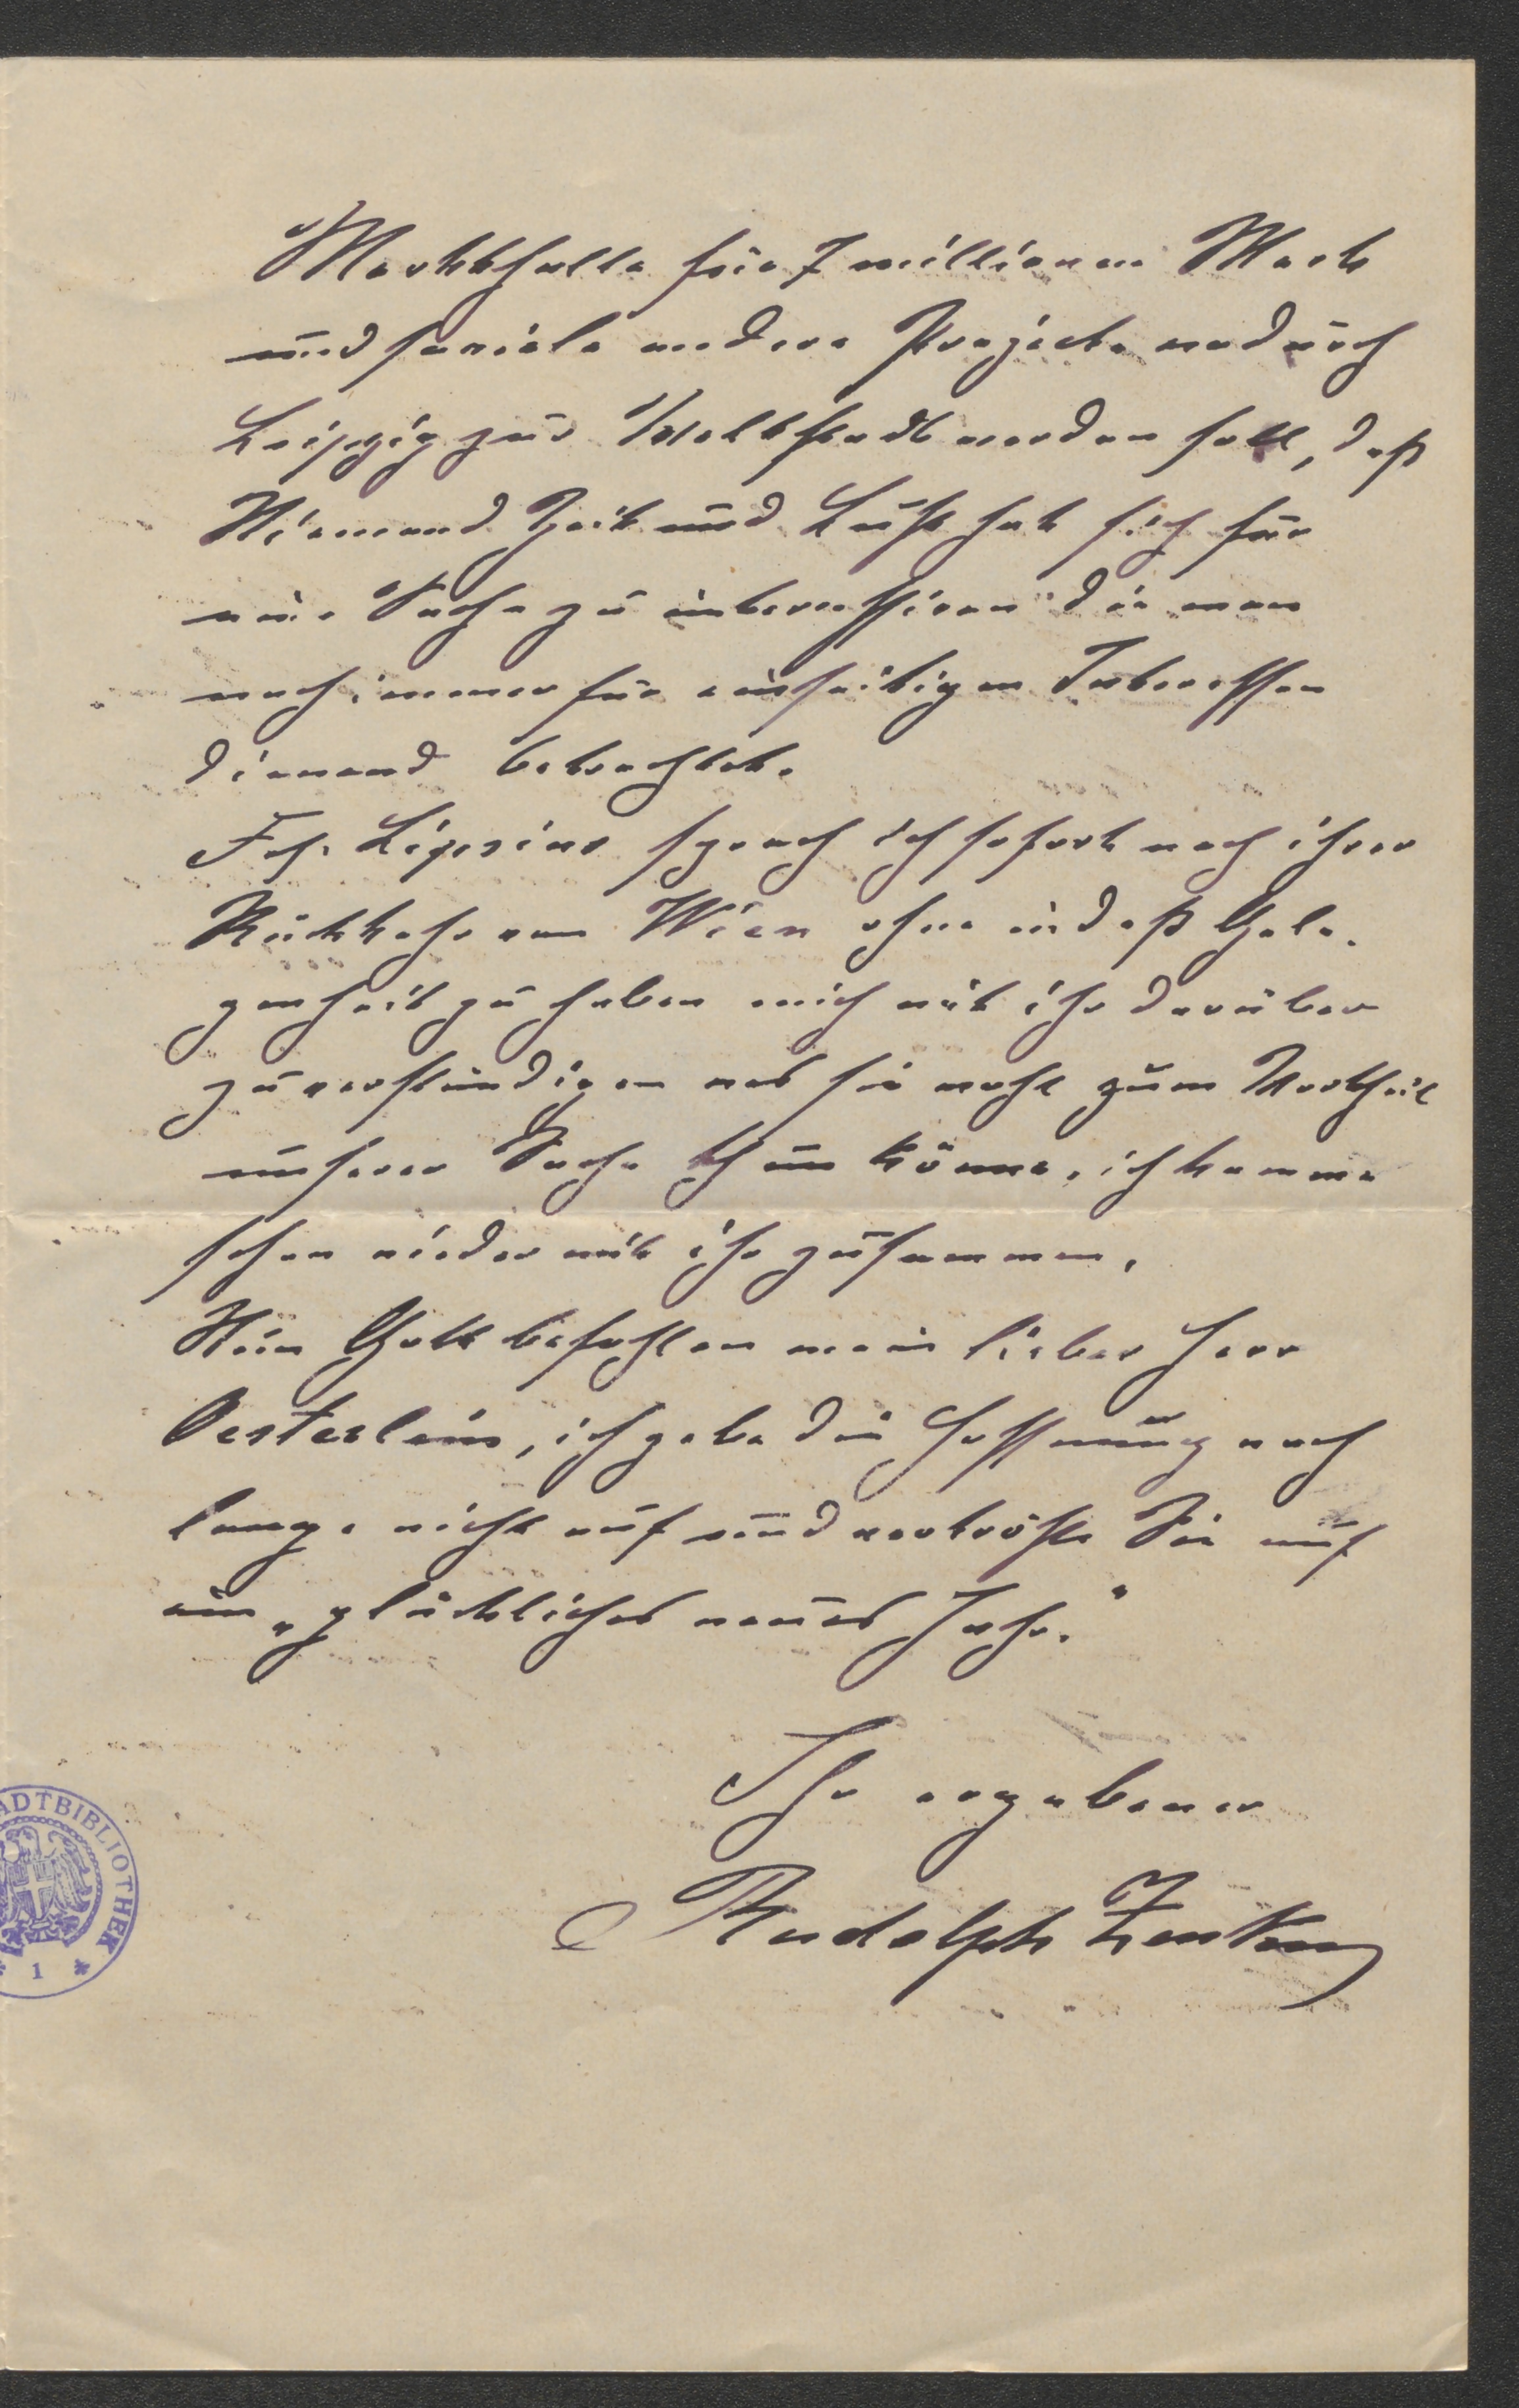 Markthalle für 7 millionen Mark
und soviele andere Projecte wodurch
Leipzig zur Weltstadt werden soll, daß
Niemand Zeit und Lust hat sich für
eine Sache zu interessiren die man
noch immer für einseitigen Interessen
dienend betrachtet.
Frl. Lipsius sprach ich sofort nach ihrer
Rückkehr von Wien ohne indeß Gele-
genheit zu haben mich mit ihr darüber
zu verständigen was sie wohl zum Vortheil
unserer Sache thun könne, ich komme
schon wieder mit ihr zusammen.
Nun Gott befohlen mein lieber Herr
Oesterlein, ich gebe die Hoffnung noch
lange nicht auf und vertröste Sie auf
ein „glückliches neues Jahr."
Ihr ergebener
Rudolph Zenker
ADTBIBLIOTHEK
* 1 *